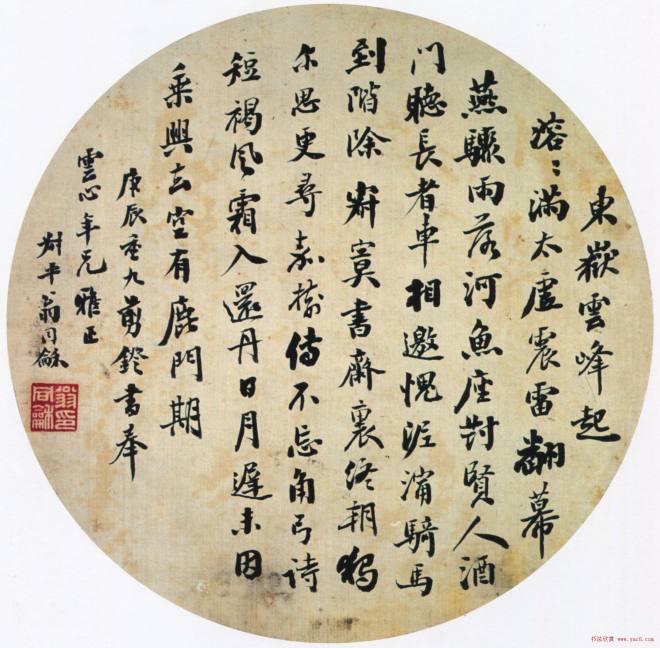 東嶽雲峰起
溶〻滿太虛震雷翻幕
燕驟雨落河魚座對賢人酒
门聽長者車相邀愧泥濘騎馬
到階除寂寞書齋裏終朝獨
尔思更尋嘉樹傳不忘角弓诗
短褐風霜入還丹日月遲未因
乘興去空有鹿門期
庚辰重九剪鐙書奉
雲心年兄雅正
叔平翁同龢
翁印同龢
书法欣赏 www.yac8.com